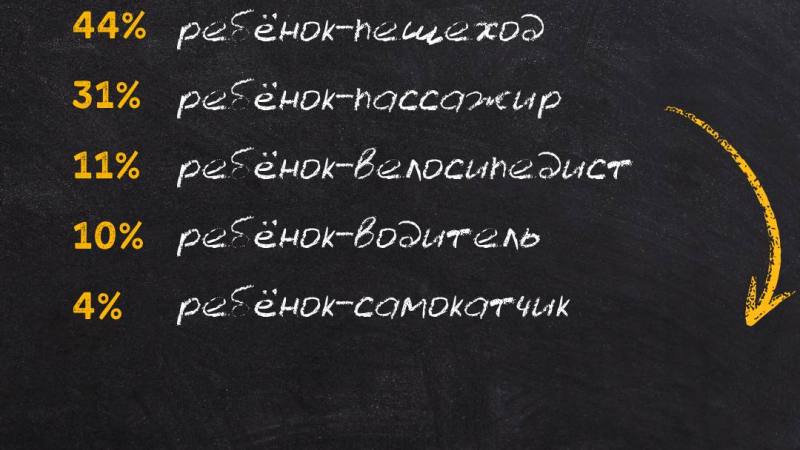 44% ребёнок-пешеход
31% ребёнок-пассажир
11% ребёнок-велосипедист
10% ребёнок-водитель
4% ребёнок-самокатчик